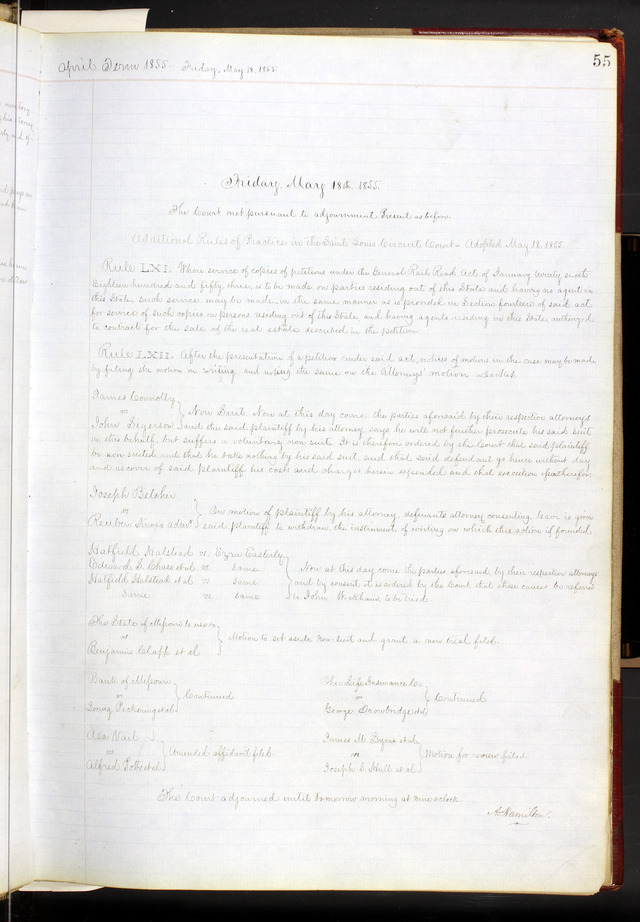 April Term 1855. Friday, May 18, 1855.
55
Friday, May 18th, 1855.
The Court met pursuant to adjournment Present as before.
Additional Rules of Practice in the Saint Louis Circuit Court – Adopted May 18. 1855.
Rule LXI. Where service of copies of petitions under the General Rail Road Act of January twenty sixth
Eighteen hundred and fifty three, is to be made on parties residing out of this State and having no agent in
this State such service may be made, in the same manner as is provided in Section fourteen of said act
for service of such copies on persons residing out of this State, and having agents residing in this State, authorized
to contract for the sale of the real estate described in the petition.
Rule LXII. After the presentation of a petition under said act, notices of motions in the case may be made
by filing the motion in writing, and noting the same on the Attorneys' motion Docket.
James Connolly
vs
John Bryerson
Non Suit. Now at this day come the parties aforesaid by their respective attorneys
and the said plaintiff by his attorney says he will not further prosecute his said suit
in this behalf, but suffers a voluntary non suit. It is therefore ordered by the Court that said plaintiff
be non suited and that he take nothing by his said suit and that said defendant go hence without day
and recover of said plaintiff his costs and charges herein expended and that execution issue therefor.
Joseph Belcher
vs
Reuben
On motion of plaintiff by his attorney, defendants attorney consenting, leave is given
said plaintiff to withdraw the instrument of writing on which this action is founded.
Hatfield Halstead vs. Cyrus Easterly
Edward D. Chase et al vs. same
Hatfield Halstead et al vs same
Same vs same
Now at this day come the parties aforesaid by their respective attorneys
and by consent it is ordered by the Court that these causes be referred
to John to be tried.
The State of Missouri to use
vs
Benjamin Clapp et al
Motion to set aside Non Suit and grant a new trial filed.
Bank of Missouri
vs
Pickering et al
Continued
The Life Insurance Co.
vs
George Trowbridge et al
Continued
Asa Nait
vs
Alfred et al
Amended affidavit filed.
James M. et al
vs
Joseph E. Hull et al
Motion for review filed
The Court adjourned until tomorrow morning at nine o'clock.
A. Hamilton.